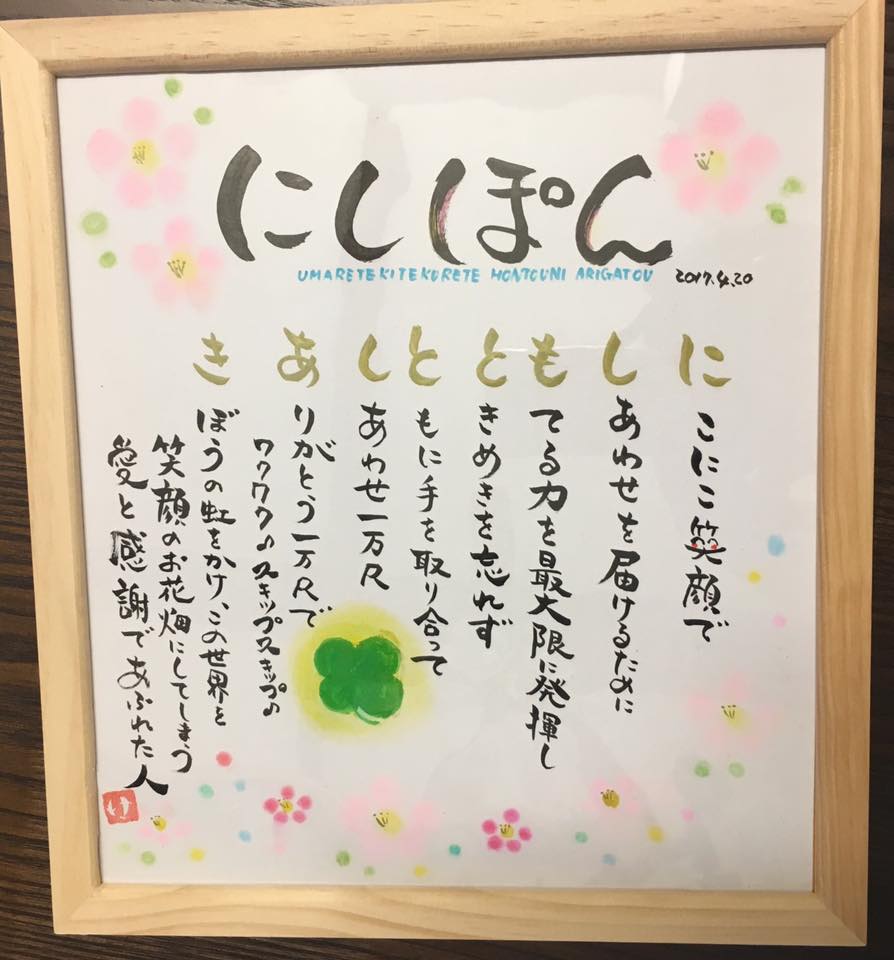 にしぽん
UMARETEKITEKURETE HONTOUNI ARIGATOU 2017.4.20
にこにこ笑顔で
しあわせを届けるために
もてる力を最大限に発揮し
ときめきを忘れず
ともに手を取り合って
しあわせ一万尺
ありがとう一万尺で
ワクワク♪スキップスキップ♪
きぼうの虹をかけ、この世界を
笑顔のお花畑にしてしまう
愛と感謝であふれた人
け